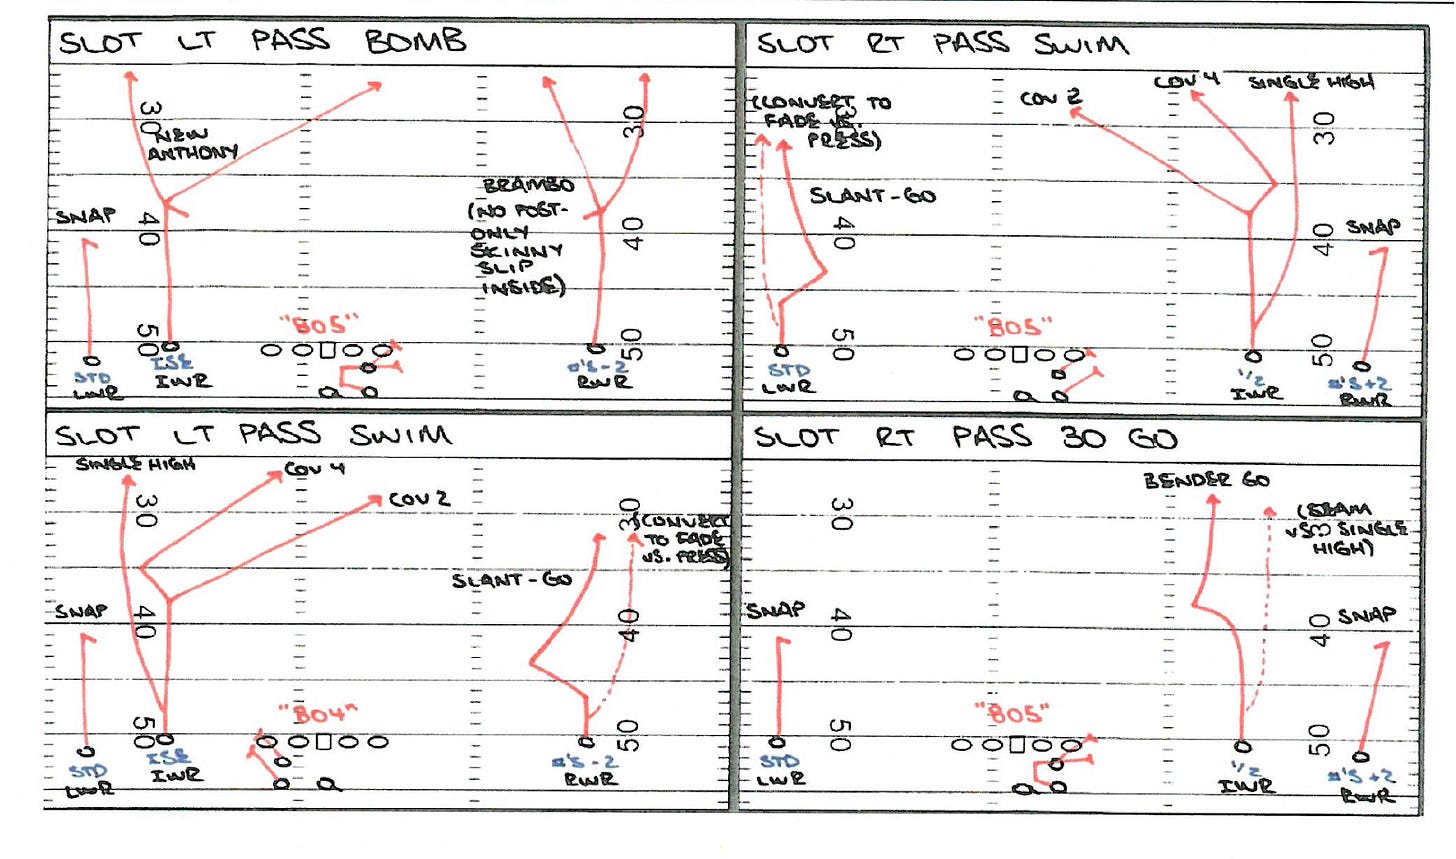 SLOT LT PASS BOMB
30
NEW
ANTHONY
SNAP
40
50
STD
LWR
ISE
IWR
"805"
BRAMBO
(NO POST-
ONLY
SKINNY
SLIP
INSIDE)
30
40
50
#'S-2
RWR
SLOT RT PASS SWIM
(CONVERT TO
FADE VS.
PRESS)
SLANT-GO
40
50
STD
LWR
COV 2
COV 4
SINGLE HIGH
30
40
SNAP
50
"805"
1/2
IWR
#'S+2
RWR
SLOT LT PASS SWIM
SINGLE HIGH
COV 4
COV 2
30
SNAP
40
50
STD
LWR
ISE
IWR
"804"
SLANT-GO
30
(CONVERT
TO FADE
VS. PRESS)
40
50
#'S-2
RWR
SLOT RT PASS 30 GO
BENDER GO
(SEAM
VS SINGLE
HIGH)
30
30
SNAP
40
40
SNAP
50
50
"805"
STD
LWR
1/2
IWR
#'S+2
RWR